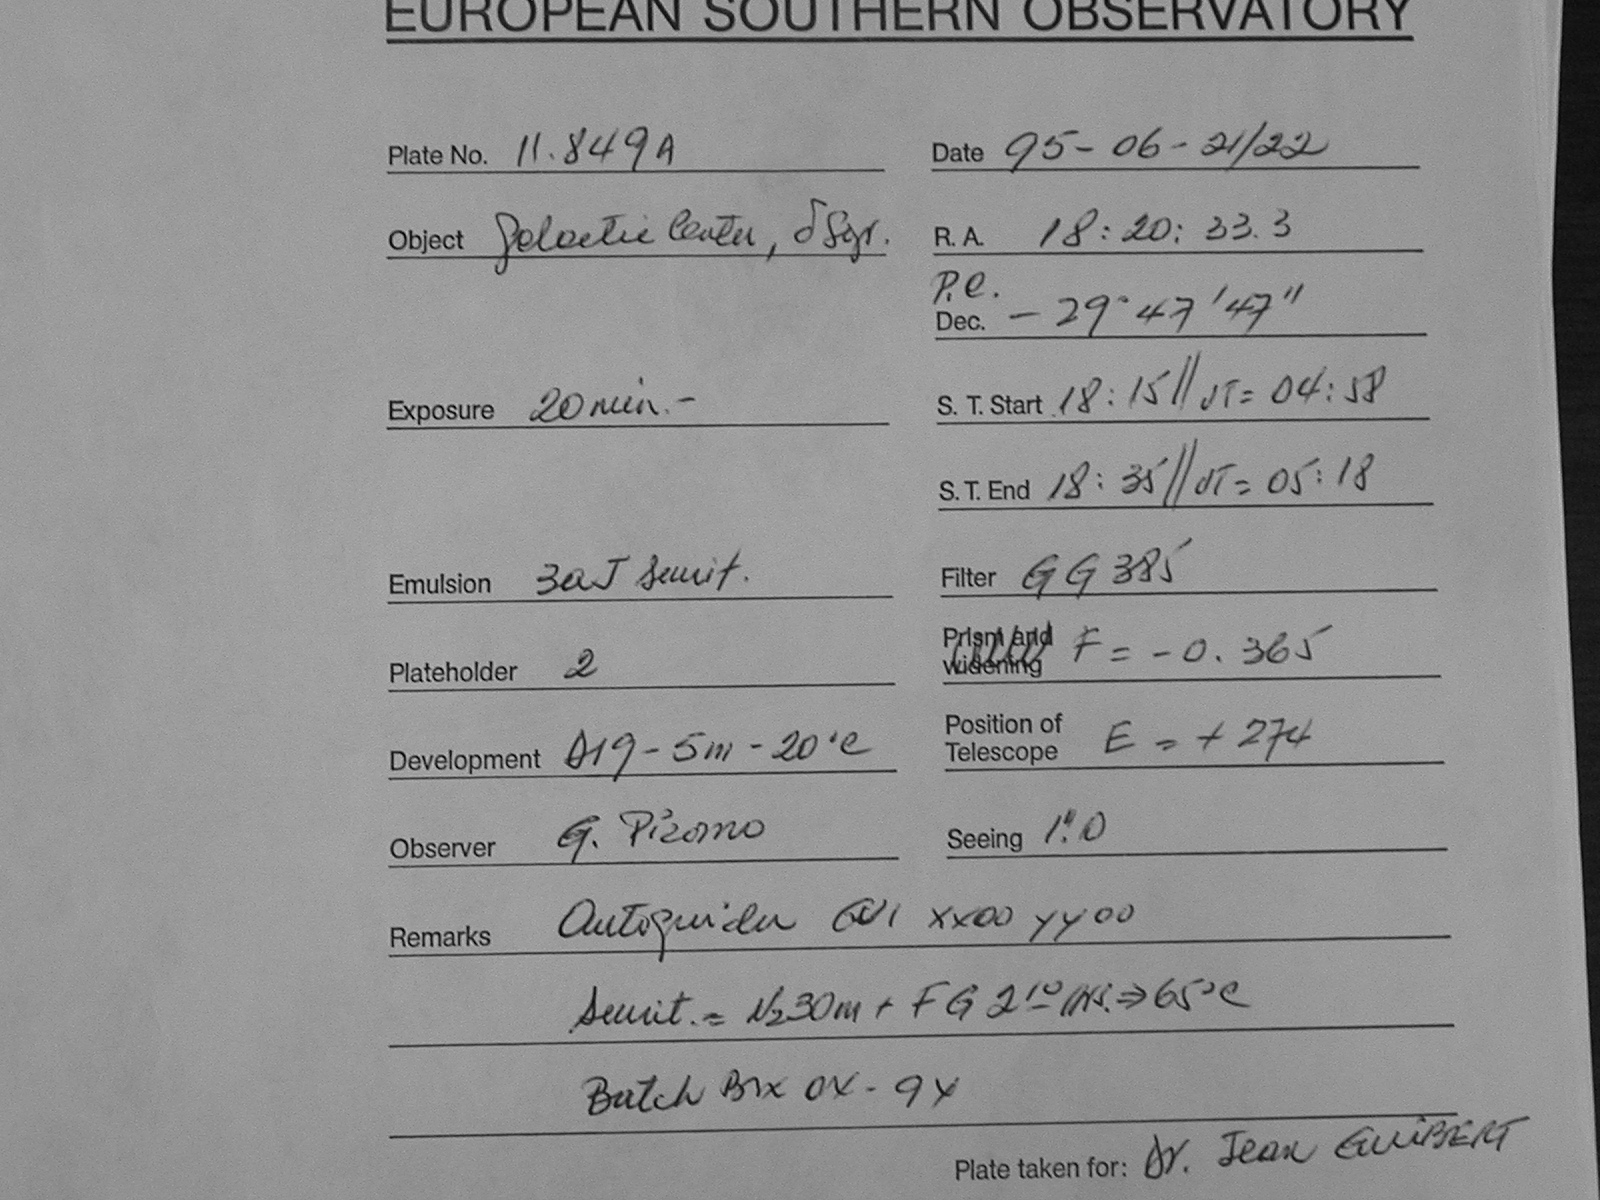 EUROPEAN SOUTHERN OBSERVATORY
Plate No. 11.849A Date 95-06-21/22
Object Galactic Center, δ Sgr. R. A. 18:20:33.3
P.C.
Dec. -29°47'47"
Exposure 20 min.- S. T. Start 18:15//UT=04:58
S. T. End 18:35//UT=05:18
Emulsion 3aJ Sensit. Filter GG385
Plateholder 2 Prism and widening F=-0.365
Development D19-5m-20°C Position of Telescope E=+274
Observer G. Pizarro Seeing 1".0
Remarks Autoguider xx00 yy00
Sensit.= N₂30m + FG 2 ⇒ 65°C
Batch 0X-9Y
Plate taken for: Dr. Jean GUIBERT